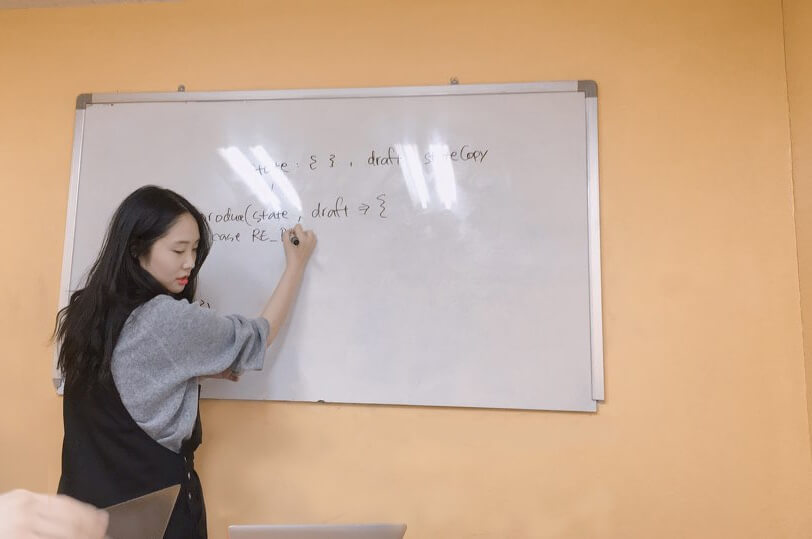 : { } , draft : stateCopy
produce(state , draft => {
case RE_
})